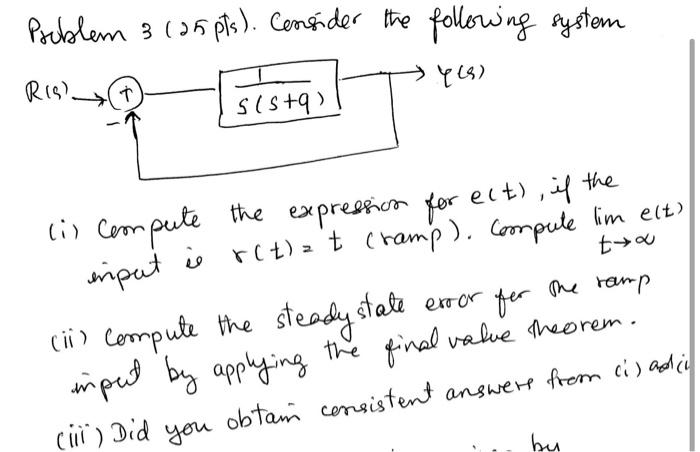 Problem 3 (25 pts). Consider the following system
R(s) + 1 Y(s)
- s(s+9)
(i) Compute the expression for e(t), if the
input is r(t) = t (ramp). Compute lim e(t)
t→∞
(ii) Compute the steady state error for the ramp
input by applying the final value theorem.
(iii) Did you obtain consistent answers from (i) ad (i
by